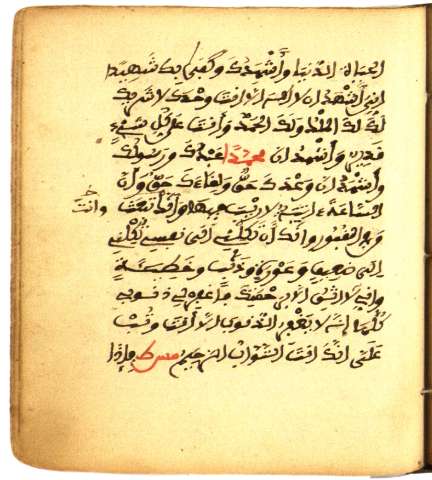 الحياة الدنيا وأشهدك وكفى بك شهيدا
اني أشهد ان لا اله الا انت وحدك لا شريك
لك لك الملك ولك الحمد وانت على كل شيء
قدير وأشهد ان محمدا عبدك ورسولك
وأشهد ان وعدك حق ولقاءك حق وأن
الساعة ءاتية لا ريب فيها وأنك تبعث
وانت
من في القبور وانك أن تكلني الى نفسي تكلني
الى ضعف وعورة وذنب وخطيئة
واني لا اثق الا برحمتك فاغفر لي ذنوبي
كلها إنه لا يغفر الذنوب الا انت وتب
علي انك انت التواب الرحيم مس ط فإذا